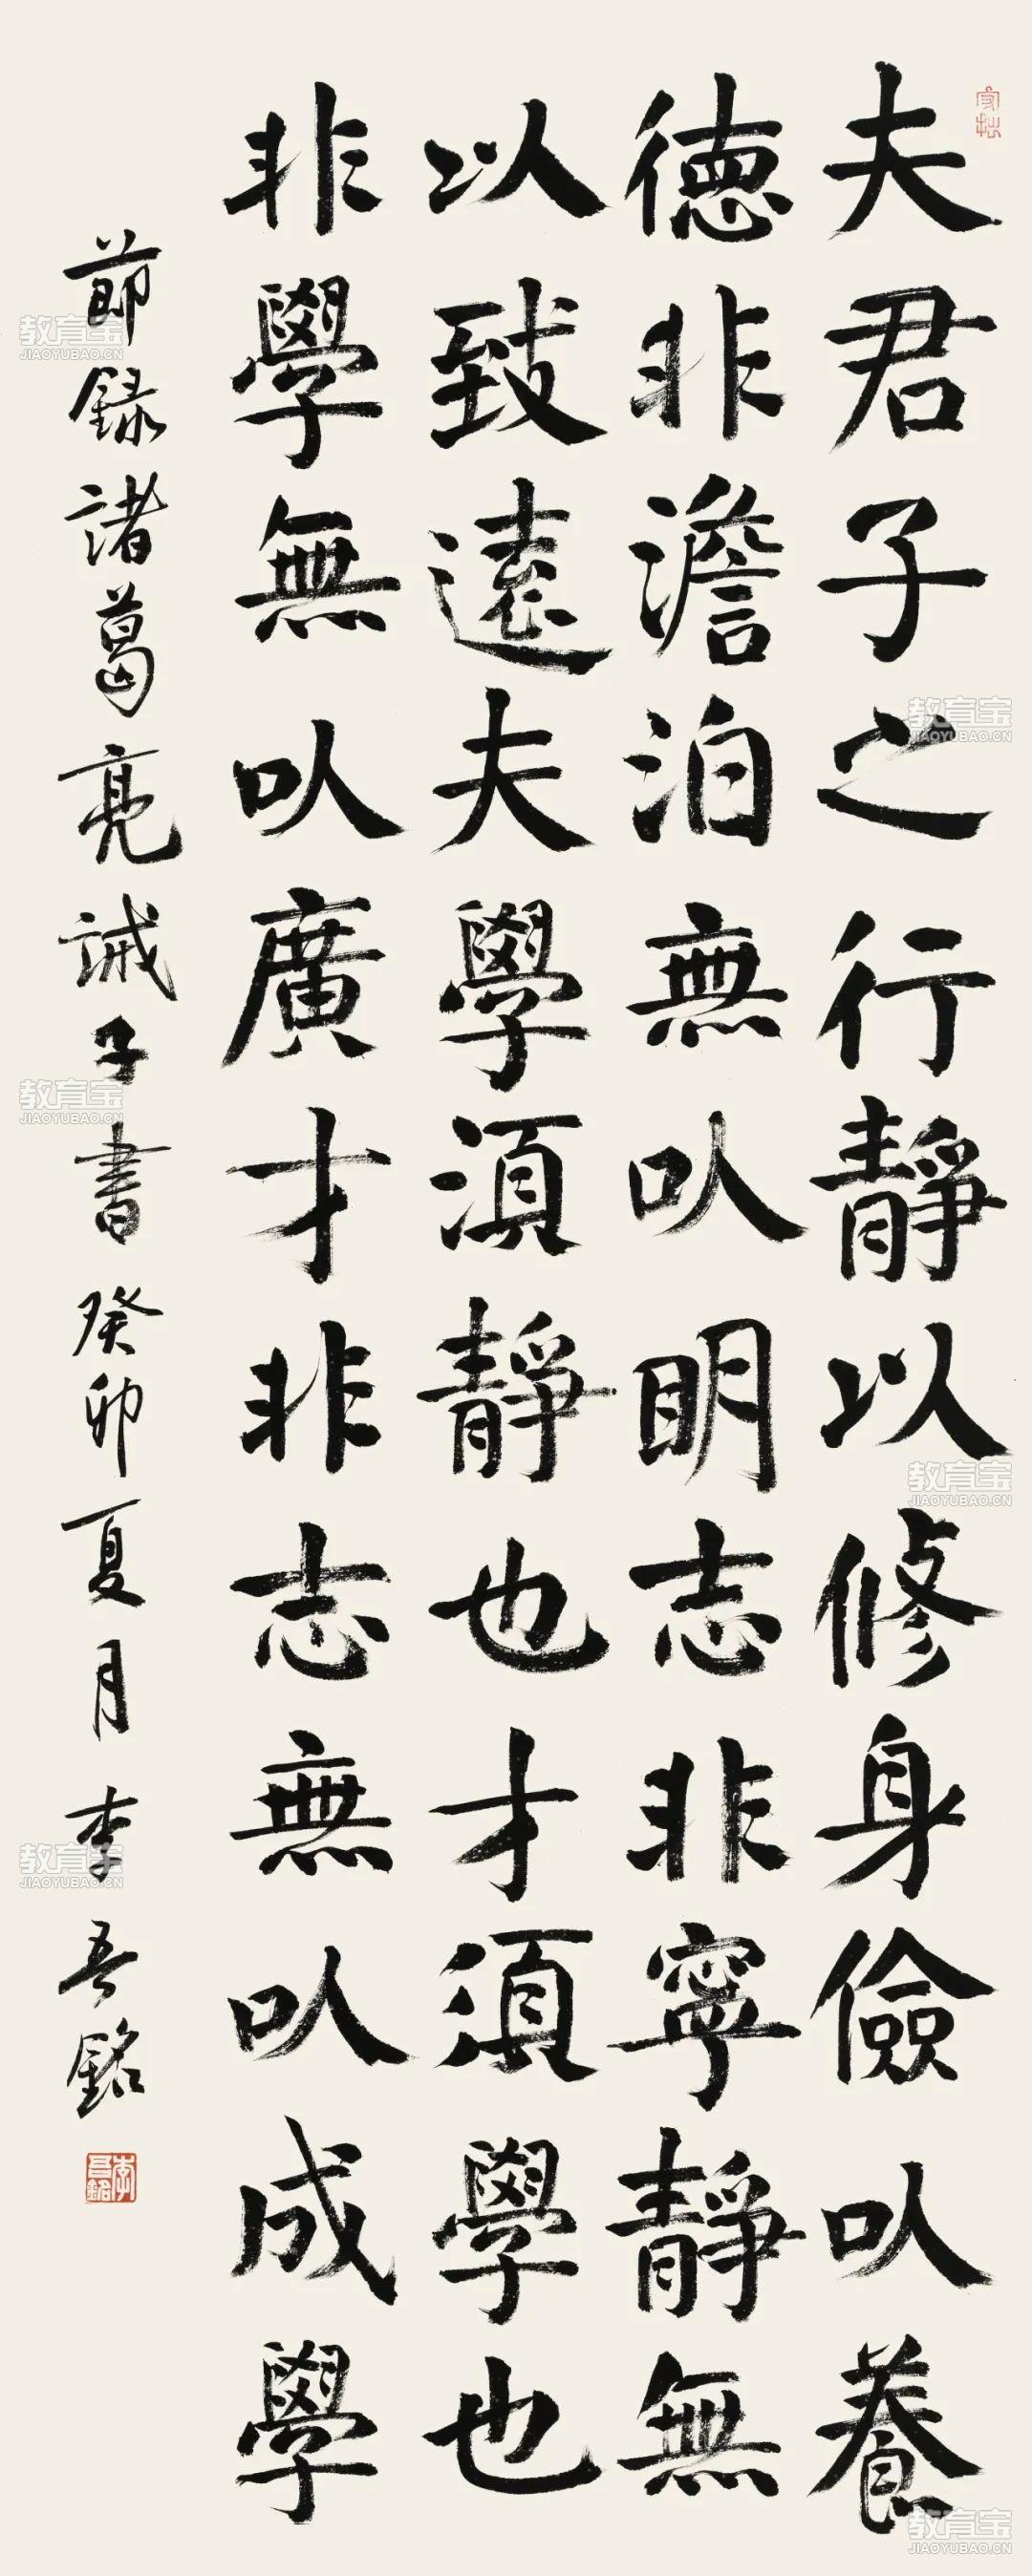 夫君子之行靜以修身儉以養
德非澹泊無以明志非寧靜無
以致遠夫學須靜也才須學也
非學無以廣才非志無以成學
節録諸葛亮誡子書癸卯夏月李吾銘
守拙
李吾銘
教育宝
JIAOYUBAO.CN
教育宝
JIAOYUBAO.CN
教育宝
JIAOYUBAO.CN
教育宝
JIAOYUBAO.CN
教育宝
JIAOYUBAO.CN
教育宝
JIAOYUBAO.CN